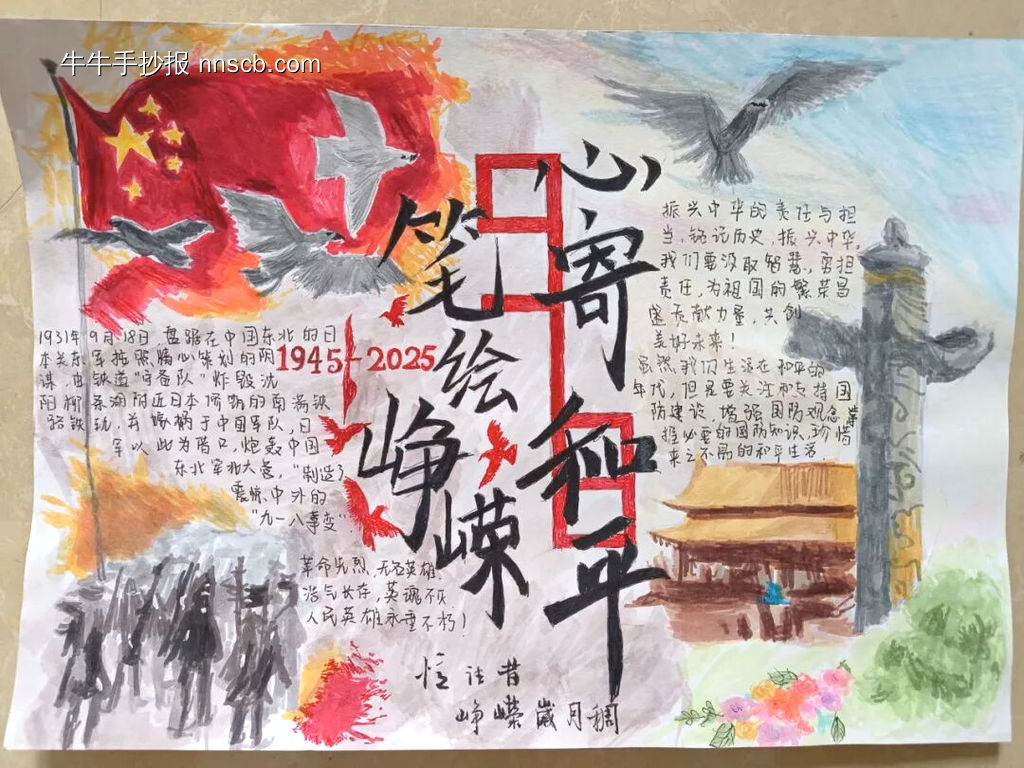 牛牛手抄报 nnscb.com
笔绘峥嵘
心寄和平
1945-2025
1931年9月18日,盘踞在中国东北的日
本关东军按照精心策划的阴
谋,由铁道"守备队"炸毁沈
阳柳条湖附近日本修筑的南满铁
路铁轨,并嫁祸于中国军队,日
军以此为借口,炮轰中国
东北军北大营,"制造了
震惊中外的
"九一八事变"
革命先烈,无名英雄,
浩气长存,英魂不灭
人民英雄永垂不朽!
忆往昔
峥嵘岁月稠
振兴中华的责任与担
当,铭记历史,振兴中华,
我们要汲取智慧,勇担
责任,为祖国的繁荣昌
盛贡献力量,共创
美好未来!
虽然我们生活在和平的
年代,但是要关注和支持国
防建设,增强国防观念,掌
握必要的国防知识,珍惜
来之不易的和平生活.